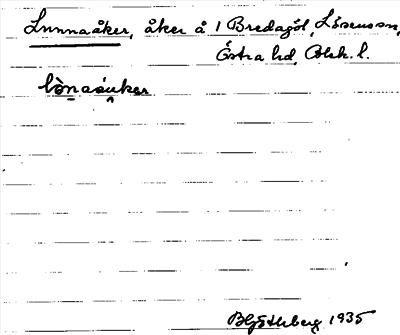 Lunnaåker, åker å 1 Bredagöl, Lösenssn,
Östra hd, Blek. l.
lònasuker
B Göthberg 1935